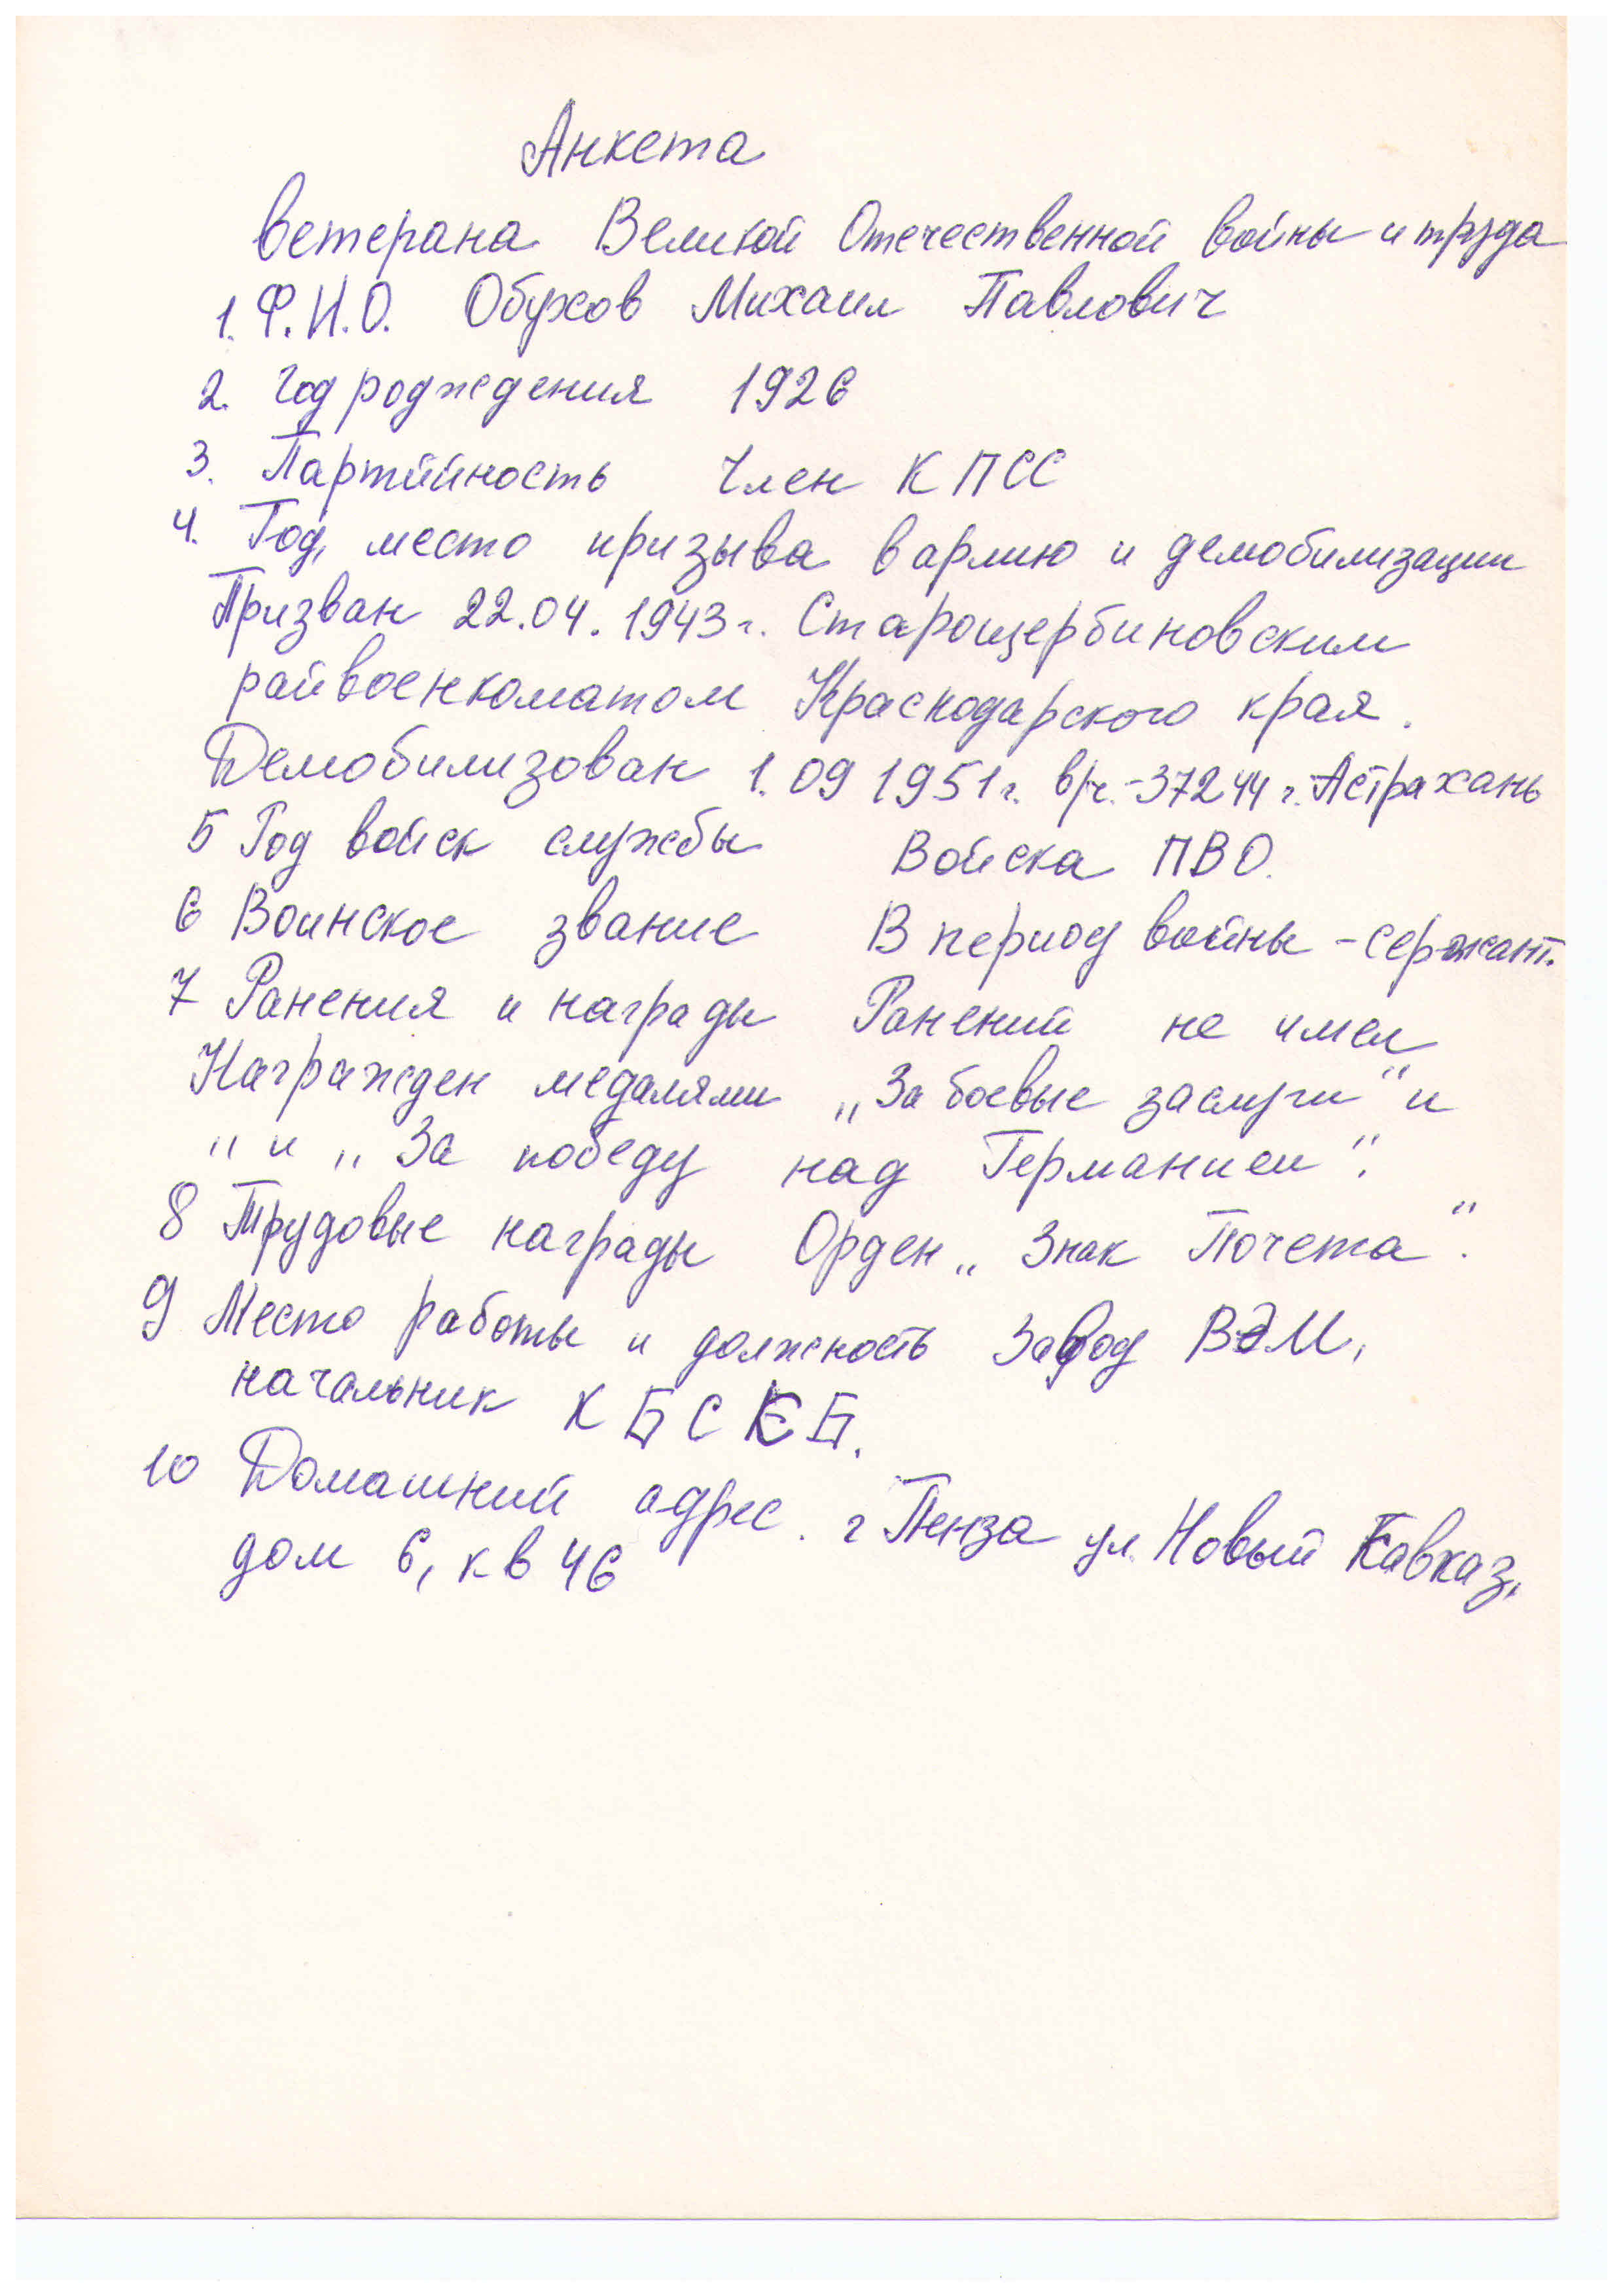 Анкета
ветерана Великой Отечественной войны и труда
1. Ф.И.О. Обухов Михаил Павлович
2. Год рождения 1926
3. Партийность Член КПСС
4. Год, место призыва в армию и демобилизации
Призван 22.04.1943 г. Старощербиновским
райвоенкоматом Краснодарского края.
Демобилизован 1.09 1951 г. в/ч.-37244 г. Астрахань
5 Род войск службы Войска ПВО.
6 Воинское звание В период войны - сержант.
7 Ранения и награды Ранений не имел
Награжден медалями „За боевые заслуги" и
" и „За победу над Германией".
8 Трудовые награды Орден „Знак Почета".
9 Место работы и должность Завод ВЭМ,
начальник КБ СКБ.
10 Домашний адрес. г Пенза ул. Новый Кавказ,
дом 6, кв 46